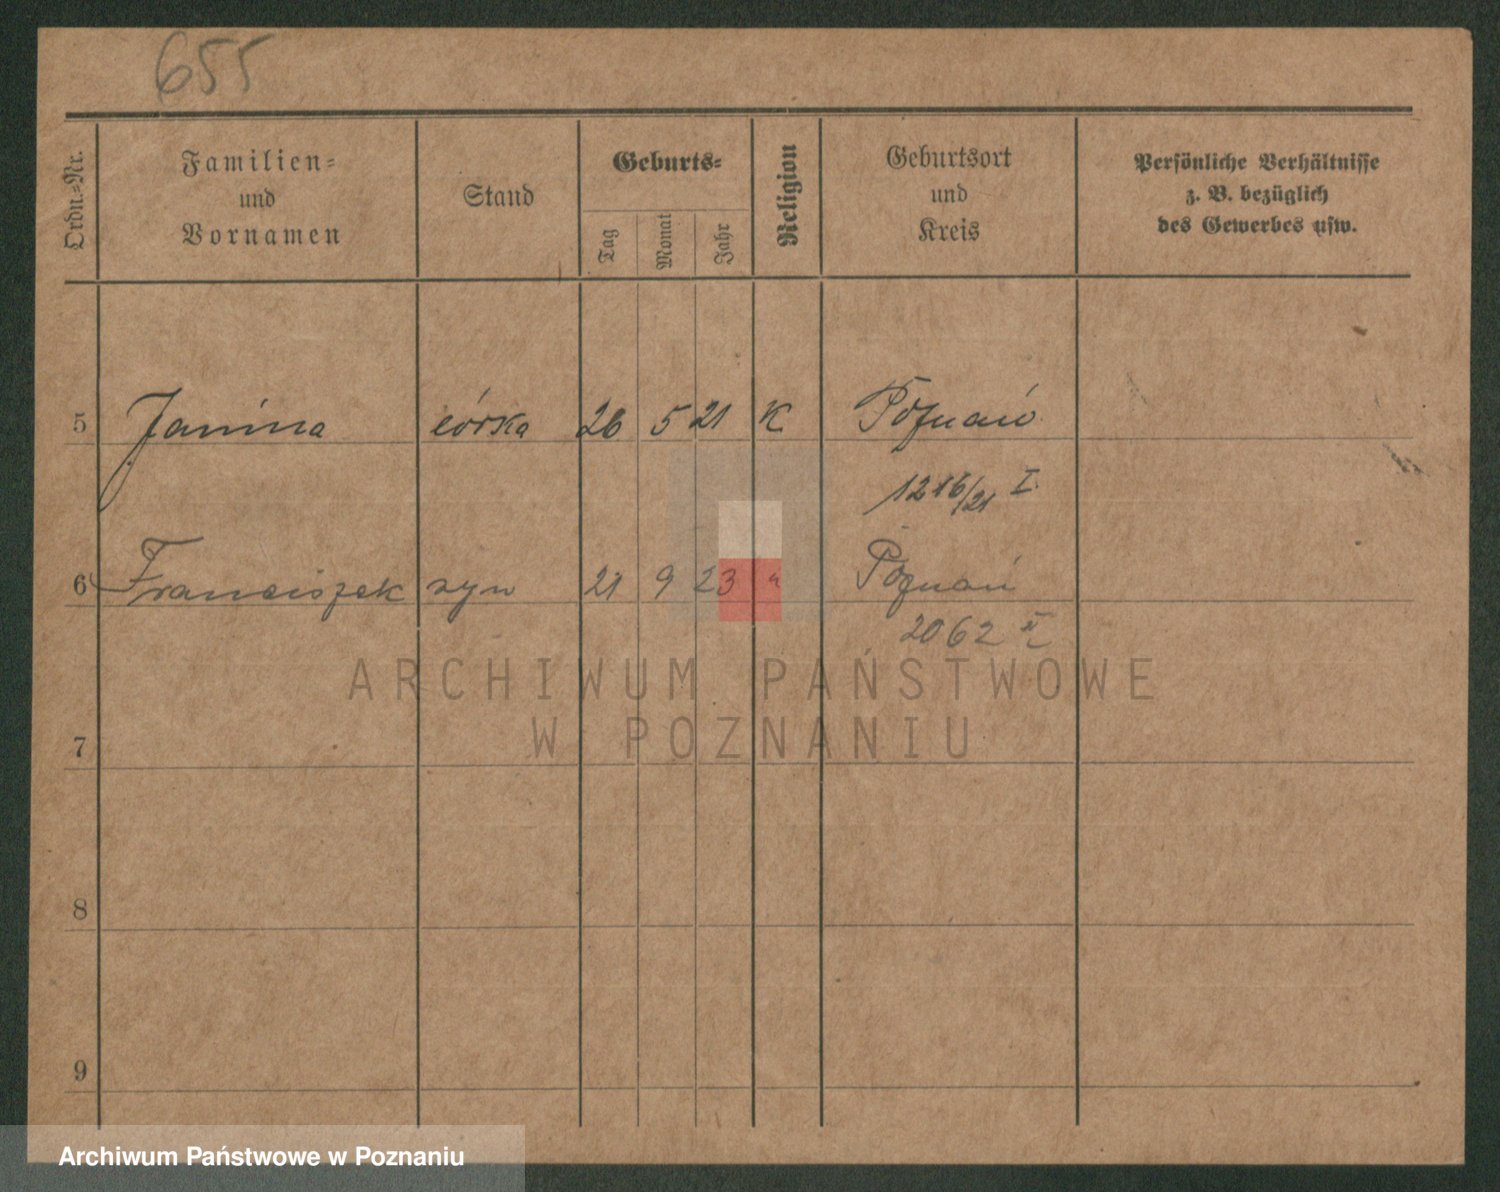 655
Ordn.-Nr.
Familien-
und
Vornamen
Stand
Geburts-
Tag
Monat
Jahr
Religion
Geburtsort
und
Kreis
Persönliche Verhältnisse
z. B. bezüglich
des Gewerbes usw.
5 Janina córka 26 5 21 K Poznań
1216/21 I
6 Franciszek syn 21 9 23 " Poznań
2062 II
ARCHIWUM PAŃSTWOWE
W POZNANIU
7
8
9
Archiwum Państwowe w Poznaniu